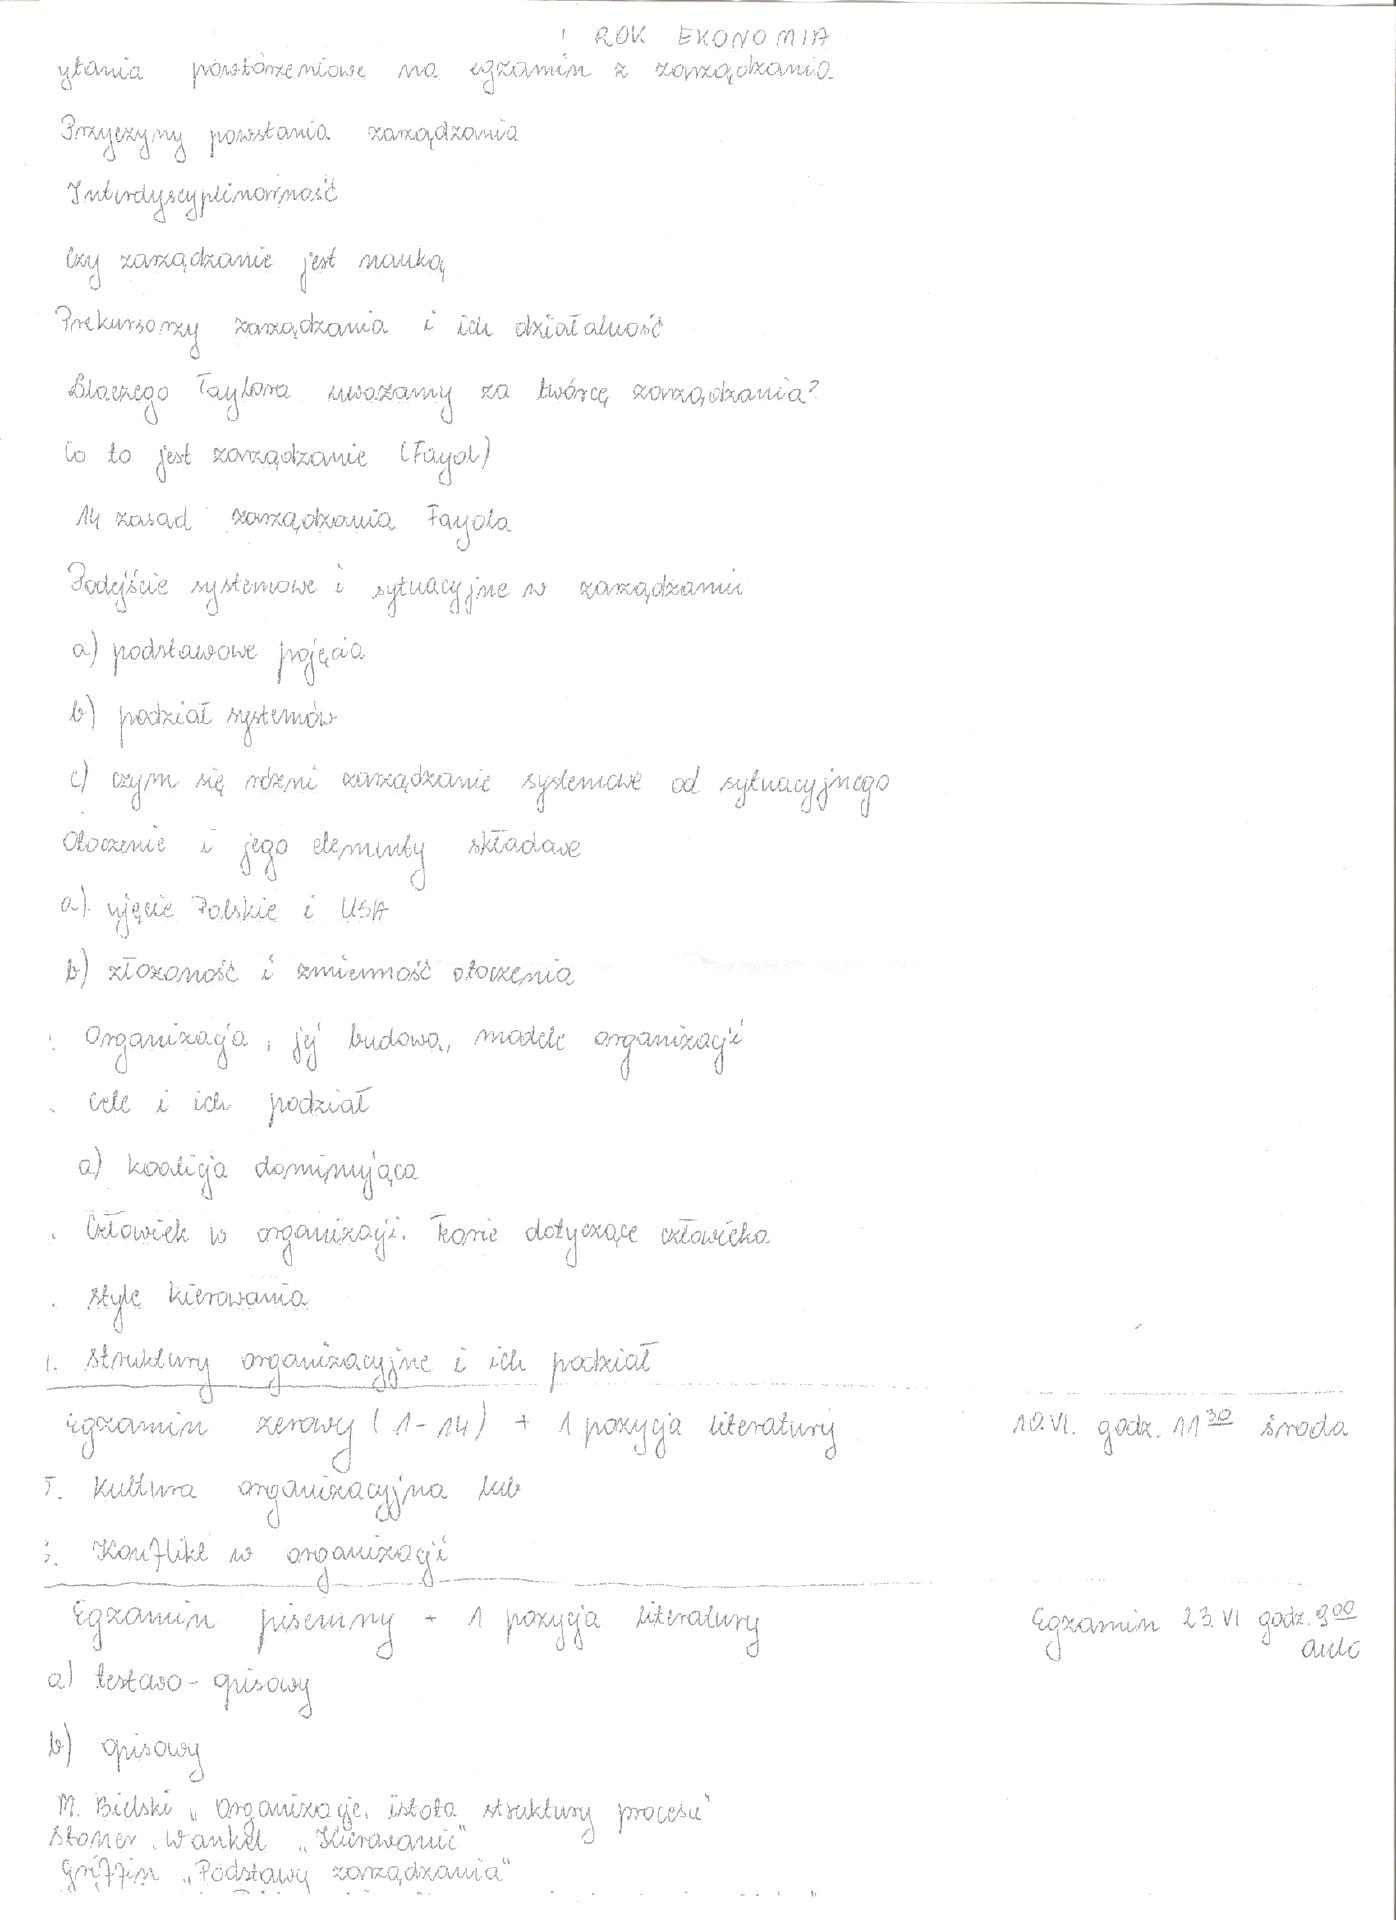 I ROK EKONOMIA
ytania powtórzeniowe na egzamin z zarządzania
Przyczyny powstania zarządzania
Interdyscyplinarność
Czy zarządzanie jest nauką
Prekursorzy zarządzania i ich działalność
Dlaczego Taylora uważamy za twórcę zarządzania?
Co to jest zarządzanie (Fayol)
14 zasad zarządzania Fayola
Podejście systemowe i sytuacyjne w zarządzaniu
a) podstawowe pojęcia
b) podział systemów
c) czym się różni zarządzanie systemowe od sytuacyjnego
Otoczenie i jego elementy składowe
a) ujęcie Polskie i USA
b) złożoność i zmienność otoczenia
Organizacja, jej budowa, modele organizacji
Cele i ich podział
a) koalicja dominująca
Człowiek w organizacji. Teorie dotyczące człowieka
Style kierowania
. Struktury organizacyjne i ich podział
Egzamin zerowy (1-14) + 1 pozycja literatury 10.VI. godz. 11 30 środa
. Kultura organizacyjna lub
. Konflikt w organizacji
Egzamin pisemny + 1 pozycja literatury Egzamin 23.VI godz. 9 00
aula
a) testowo-opisowy
b) opisowy
M. Bielski „Organizacje, istota struktury procesu"
Stoner, Wankel „Kierowanie"
Griffin „Podstawy zarządzania"